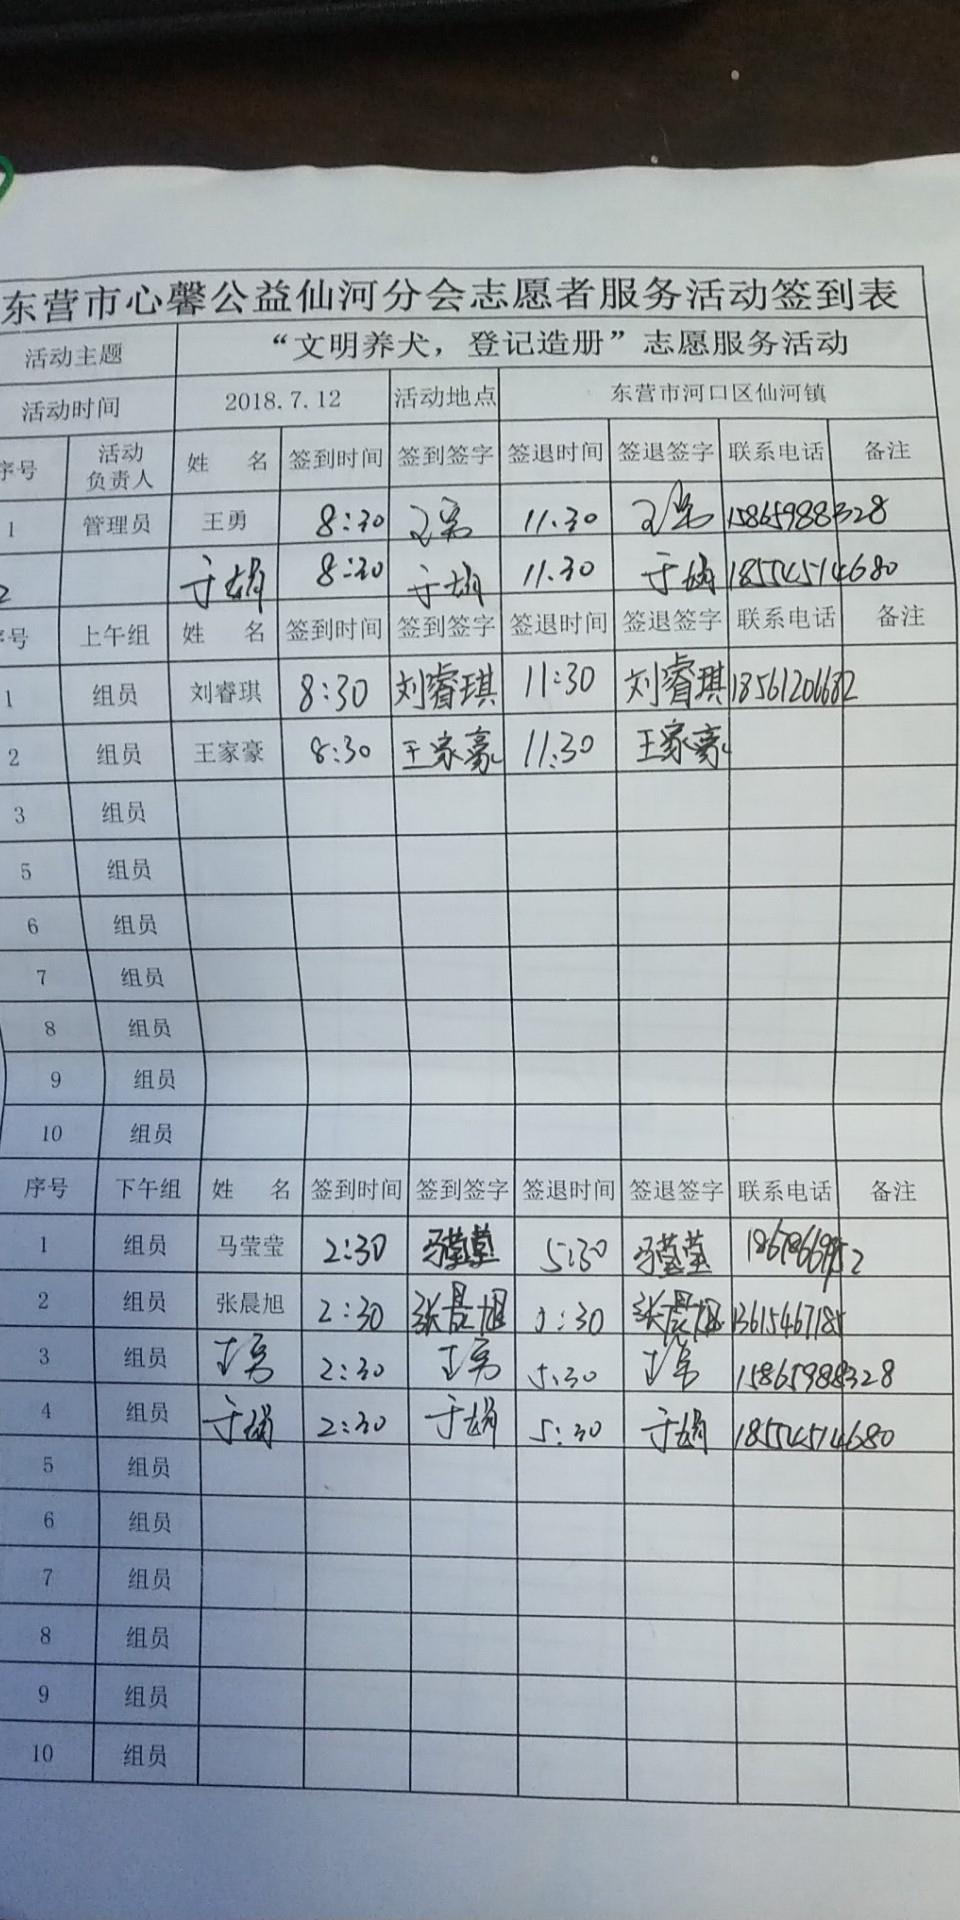 东营市心馨公益仙河分会志愿者服务活动签到表
活动主题 “文明养犬，登记造册”志愿服务活动
活动时间 2018.7.12 活动地点 东营市河口区仙河镇
序号 活动负责人 姓 名 签到时间 签到签字 签退时间 签退签字 联系电话 备注
1 管理员 王勇 8:30 王勇 11.30 王勇 15865988328
2 于娟 8:30 于娟 11.30 于娟 18554514680
序号 上午组 姓 名 签到时间 签到签字 签退时间 签退签字 联系电话 备注
1 组员 刘睿琪 8:30 刘睿琪 11:30 刘睿琪 18561206682
2 组员 王家豪 8:30 王家豪 11:30 王家豪
3 组员
5 组员
6 组员
7 组员
8 组员
9 组员
10 组员
序号 下午组 姓 名 签到时间 签到签字 签退时间 签退签字 联系电话 备注
1 组员 马莹莹 2:30 马莹莹 5:30 马莹莹
2 组员 张晨旭 2:30 张晨旭 :30 张晨旭
3 组员 王勇 2:30 王勇 5.30 王勇 15865988328
4 组员 于娟 2:30 于娟 5:30 于娟 18554514680
5 组员
6 组员
7 组员
8 组员
9 组员
10 组员